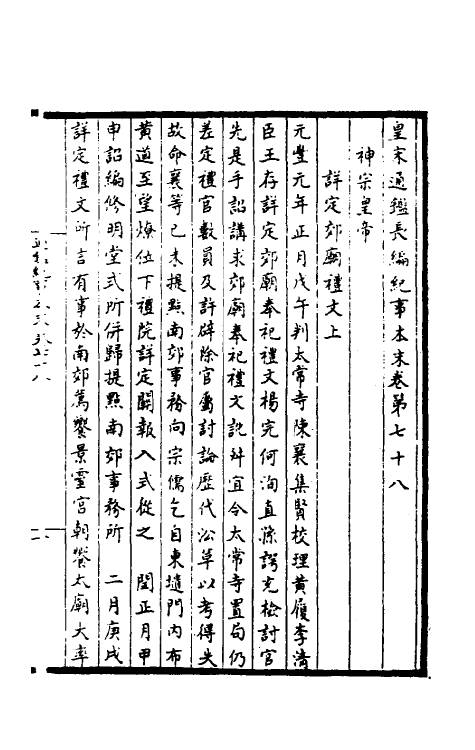 皇宋通鑑長編紀事本末卷第七十八
神宗皇帝
詳定郊廟禮文上
元豐元年正月戊午判太常寺陳襄集賢校理黃履李清
臣王存詳定郊廟奉祀禮文楊完何洵直孫諤充檢討官
先是手詔講求郊廟奉祀禮文訛舛宜令太常寺置局仍
差定禮官數員及許辟除官屬討論歷代沿革以考得失
故命襄等已未提點南郊事務向宗儒乞自東壝門內布
黃道至望燎位下禮院詳定關報入式從之 閏正月甲
申詔編修明堂式所併歸提點南郊事務所 二月庚戌
詳定禮文所言有事於南郊薦饗景靈宮朝饗太廟大率